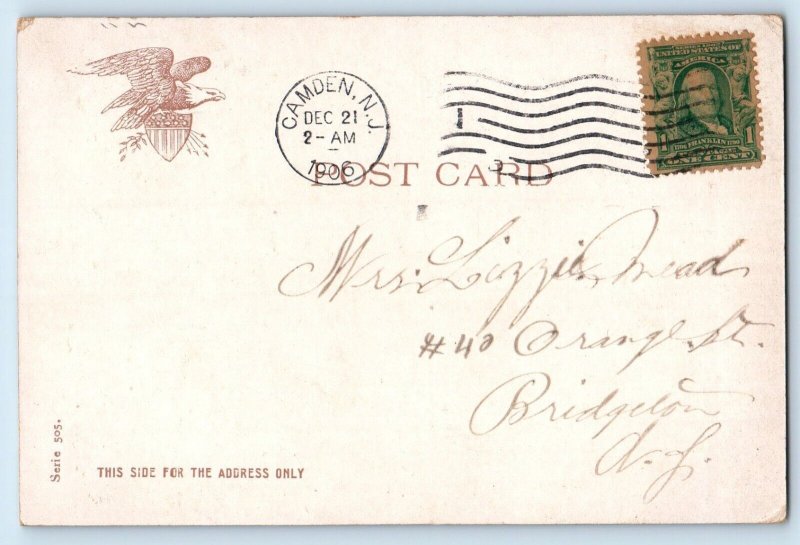 CAMDEN, N.J.
DEC 21
2-AM
1906
1
3
SERIES 1902
UNITED STATES OF
AMERICA
1 1
1706 FRANKLIN 1790
POSTAGE
ONE CENT
POST CARD
Mrs. Lizzie Mead
#40 Orange St.
Bridgeton
N.J.
Serie 505.
THIS SIDE FOR THE ADDRESS ONLY